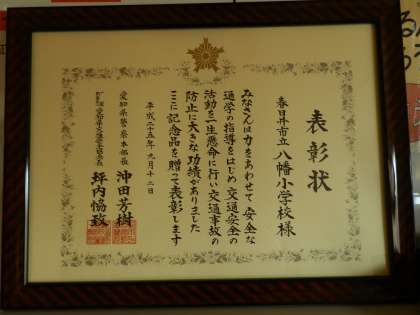 表彰状
春日井市立八幡小学校様
みなさんは力をあわせて、安全な
通学の指導をはじめ交通安全の
活動を一生懸命に行い交通事故の
防止に大きな功績がありました
ここに記念品を贈って表彰します
平成二十五年九月十二日
愛知県警察本部長 沖田芳樹
坪内恊致